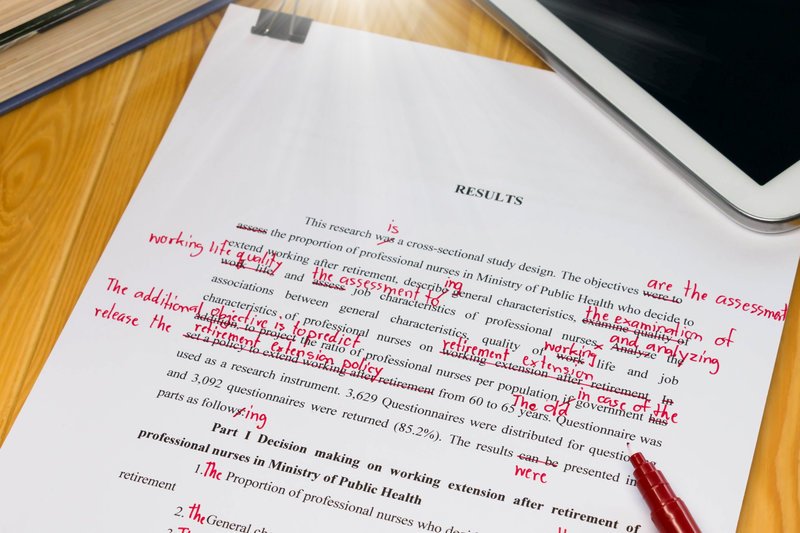 RESULTS
is
This research was a cross-sectional study design. The objectives were to
are the assessment
assess the proportion of professional nurses in Ministry of Public Health who decide to
working life quality
ing
extend working after retirement, describe general characteristics, examine quality of
the examination of
work life, and assess job characteristics of professional nurses. Analyze the
the assessment to
and analyzing
associations between general characteristics, quality of work life and job
working
The additional objective is to predict
characteristics of professional nurses on working extension after retirement. In
retirement extension
release the
addition, to project the ratio of professional nurses per population if government has
retirement extension policy
in case of the
set a policy to extend working after retirement from 60 to 65 years. Questionnaire was
The old
used as a research instrument. 3,629 Questionnaires were distributed for
and 3,092 questionnaires were returned (85.2%). The results can be presented in
were
parts as follow:
ing
Part I Decision making on working extension after retirement of
professional nurses in Ministry of Public Health
1. The Proportion of professional nurses who
retirement
2. the General
3.